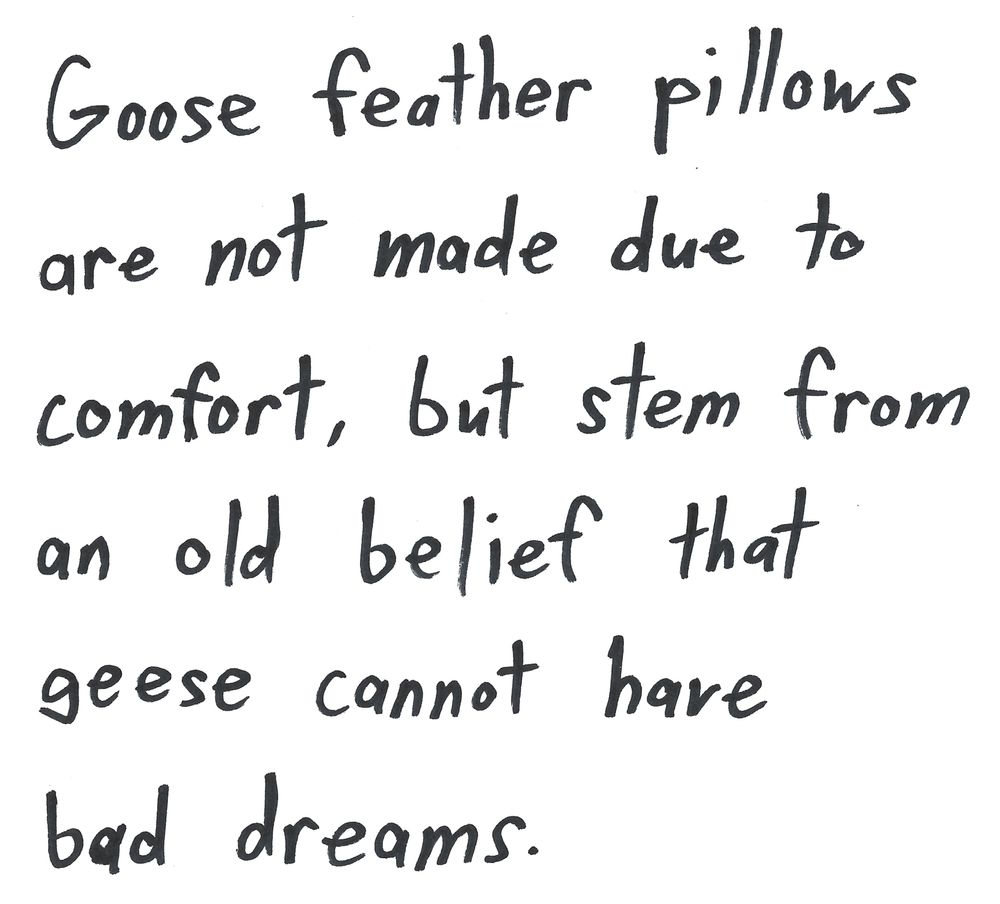 Goose feather pillows
are not made due to
comfort, but stem from
an old belief that
geese cannot have
bad dreams.